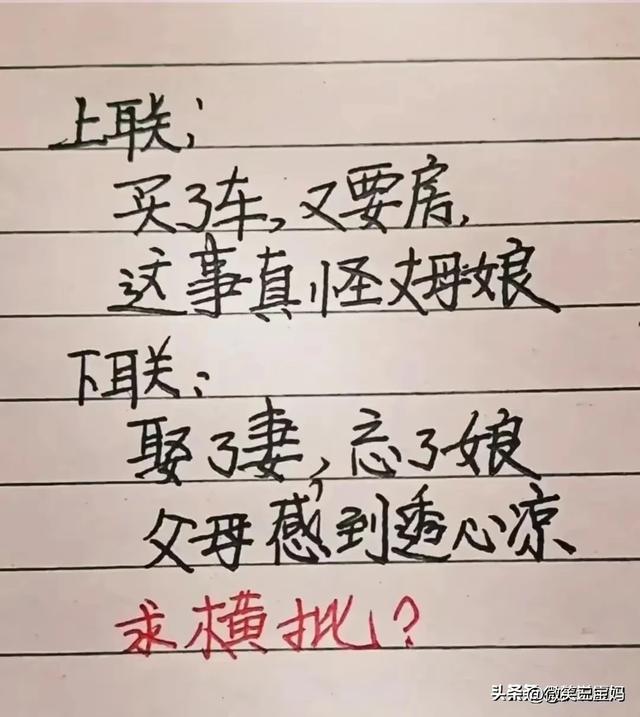 上联:
买了车,又要房,
这事真怪丈母娘
下联:
娶了妻,忘了娘
父母感到透心凉
求横批?